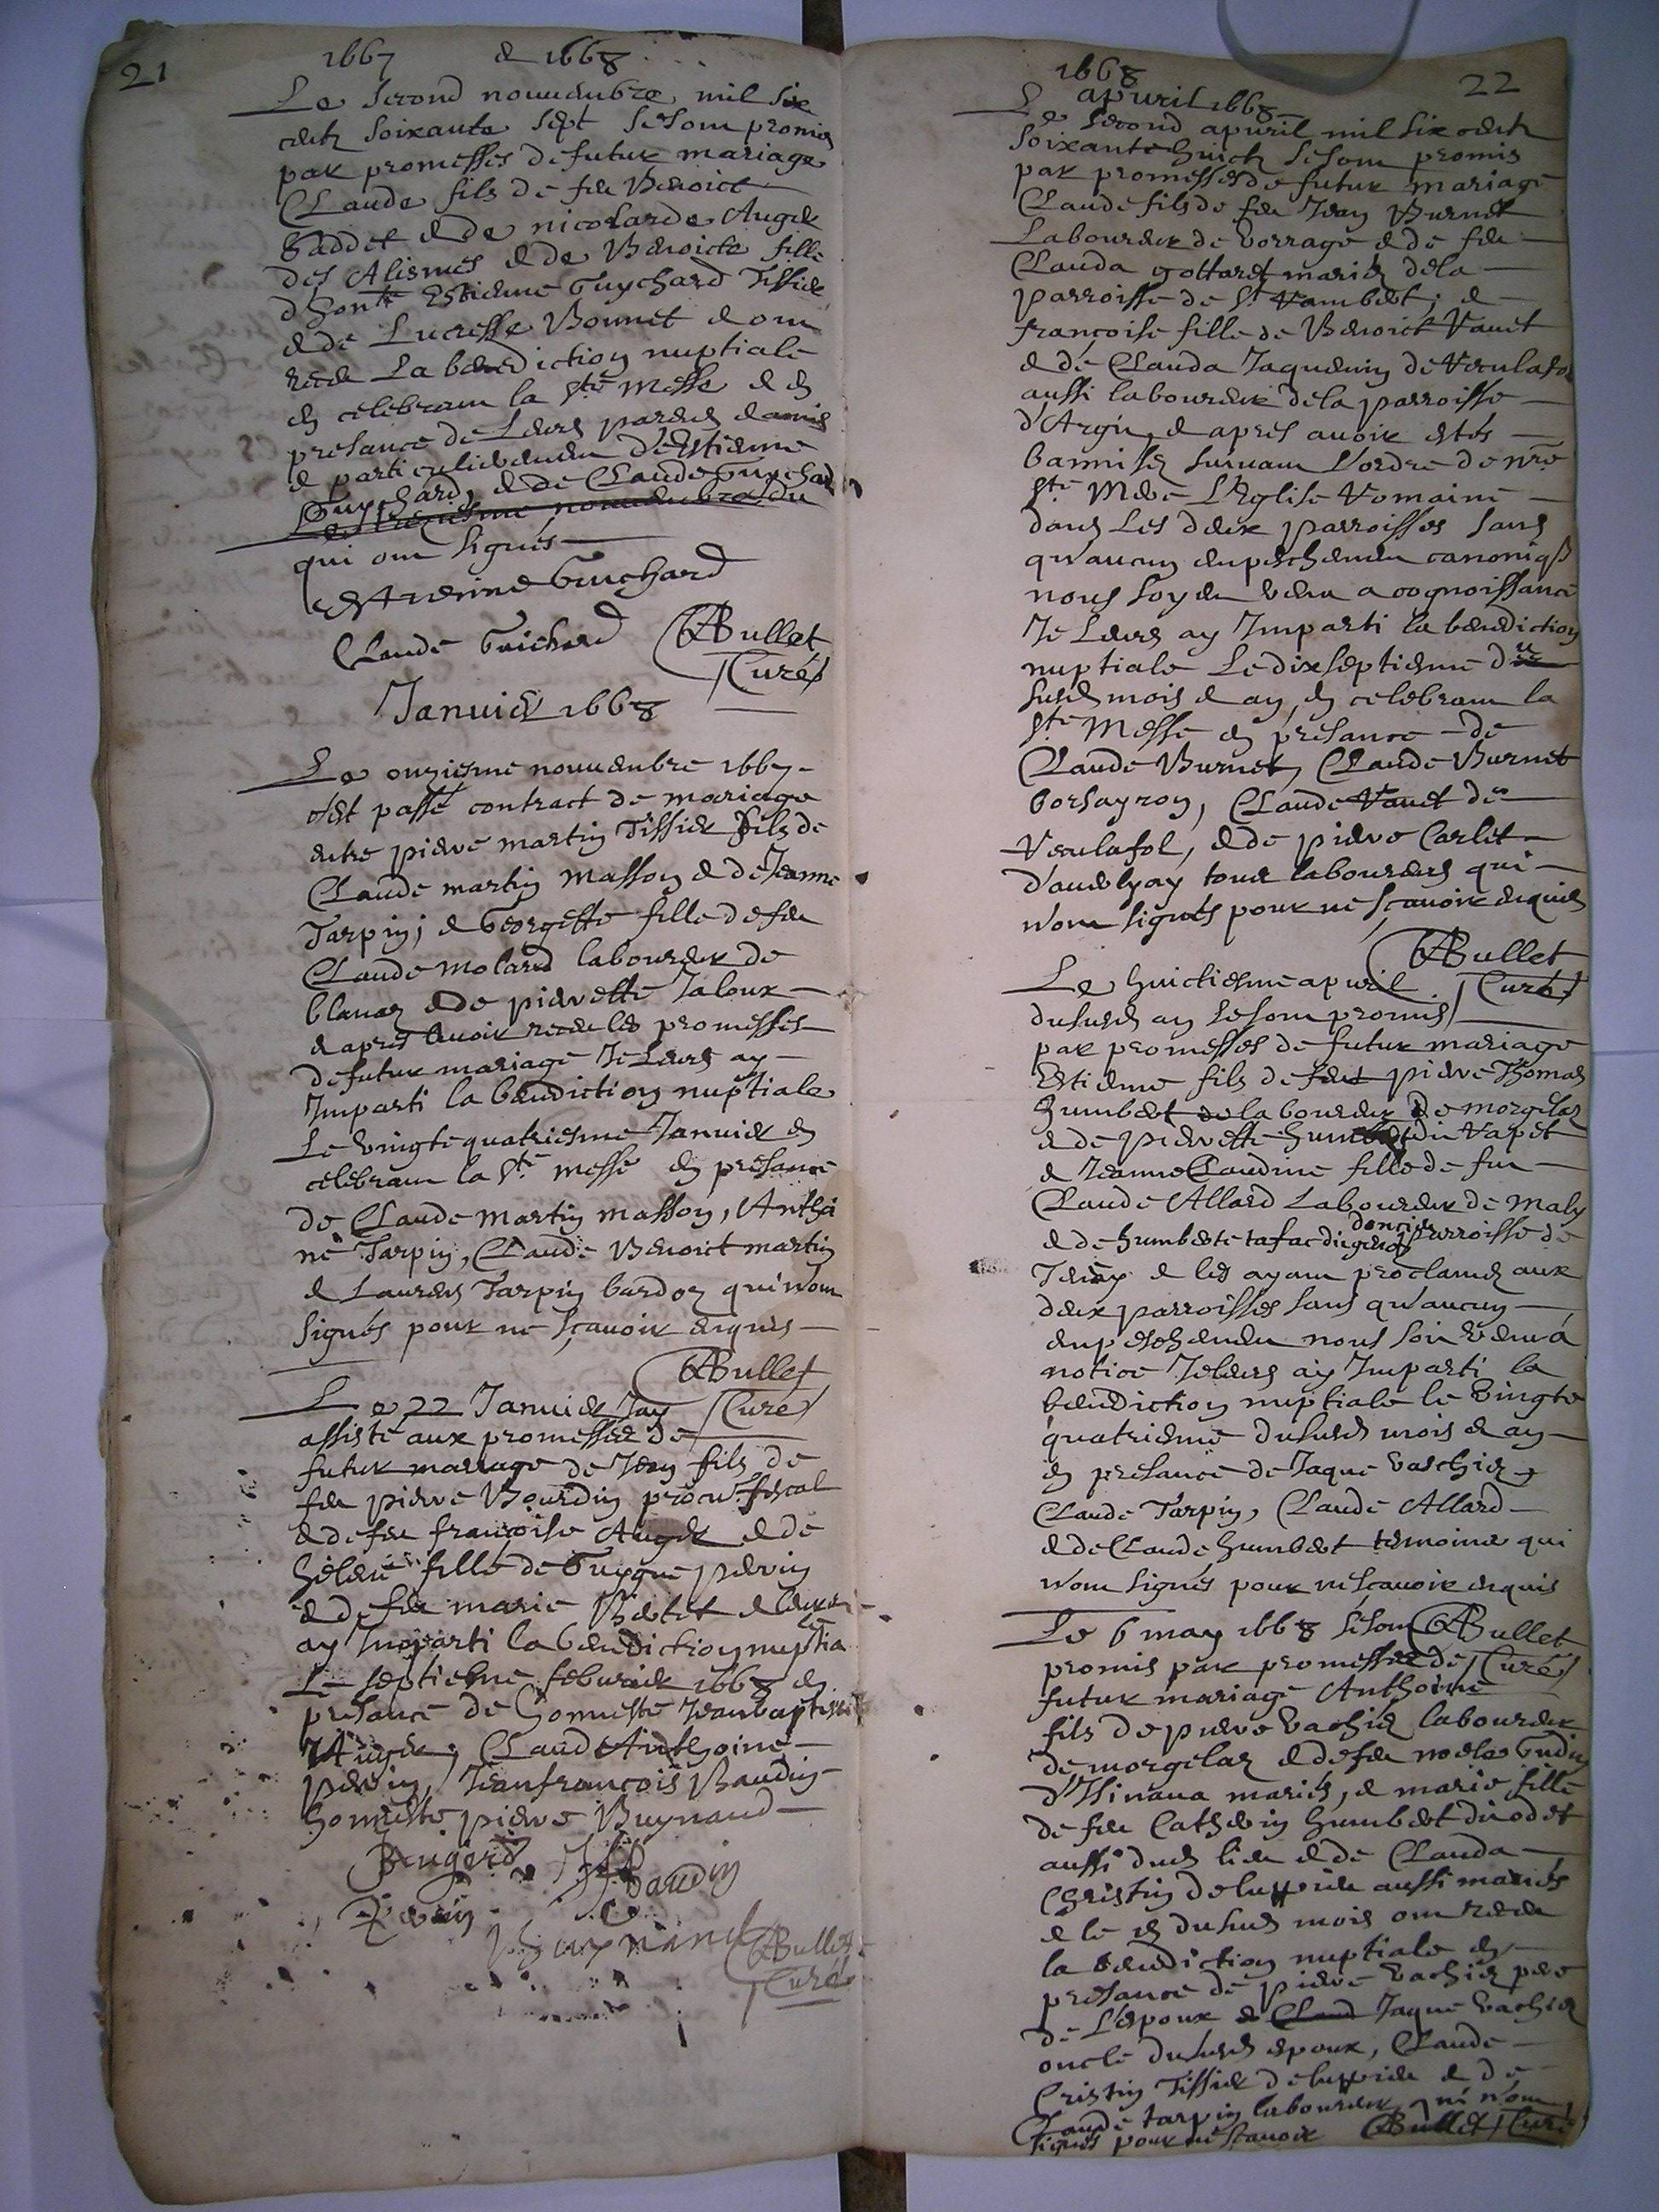 21
1667 & 1668
Le second nouuembre mil six
centz soixante sept se som promis
par promesses de futur mariage
Claude fils de feu Benoict
baddet & de nicolarde Auger
des Alismes & de Benoicte fille
d'honte Estienne Guychard Tissier
& de Lucresse Bonnet & om
receu La benediction nuptiale
en celebram la Ste Messe & en
presance de Leurs parens & amis
& particulieremem d'Estienne
Guychard, & de Claude Guychard
nouuembre du
qui om signés
Estienne Guichard
Claude Guichard Bullet
Curé
Januier 1668
Le onziesme nouuembre 1667
s'est passé contract de mariage
entre pierre martin Tissier fils de
Claude martin masson & de Jeanne
Tarpin; & Georgette fille de feu
Claude molard laboureur de
blanaz & de pierrette Jaloux
& apres auoir receu les promesses
de futur mariage Je Leurs ay
Imparti la benediction nuptiale
Le vingtequatriesme Januier en
celebram la Ste messe en presance
de Claude martin masson, Anthoi
ne Tarpin, Claude Benoict martin
& Laurens Tarpin bardoz qui n'om
signés pour ne sçauoir enquis
Bullet
Curé
Le 22 Januier Jay
assisté aux promesses de
futur mariage de Jean fils de
feu pierre Bourdin procur. fiscal
& de feu françoise Auger & de
helene fille de Guygue perrin
& de feu marie & leurs
ay Imparti la benediction nuptia
le
Le septiesme feburier 1668 en
presance de honneste Jeanbaptiste
Auger, Claud Anthoine
perrin, Jeanfrancois Baudin
honneste pierre Buynand
Augerd Baudin
Perrin
Buynand Bullet
Curé
1668
22
apuril 1668
Le second apuril mil six centz
soixante huict se som promis
par promesses de futur mariage
Claude fils de feu Jean Burnet
Laboureur de vorrage & de feu
Clauda gottaret mariés dela
parroisse de St Rambert; &
françoise fille de Benoict Ravet
& de Clauda Jaquemin de Reculafol
aussi laboureur dela parroisse
d'Argis, & apres auoir estés
bannisés suiuam l'ordre de nre
Ste Mere L'Eglise Romaine
dans Les deux parroisses sans
qu'aucun empeschemem canoniq
nous soyem venu a cognoissance
Je Leurs ay Imparti la benediction
nuptiale Le dixseptieme du
susds mois & an, en celebram la
Ste Messe en presance de
Claude Burnet, Claude Burnet
borsayron, Claude Ravet de
Reculafol, & de pierre Carlet
tous laboureurs qui
n'om signés pour ne sçauoir enquis
Bullet
Curé
Le huictiesme apuril
du susds an se som promis
par promesses de futur mariage
Estienne fils de feu pierre Thomas
humbert laboureur de morgelaz
& de pierrette humbert du Rapet
& Jeanne Claudine fille de feu
Claude Allard Laboureur de Maly
& de humberte tafac parroisse de
Tenay & les ayam proclamés aux
deux parroisses sans qu'aucun
empeschemem nous soit venu a
notice Je leurs ay Imparti la
benediction nuptiale le vingte
quatrieme dususds mois & an
en presance de Jaque vachier
Claude Tarpin, Claude Allard
& de Claude humbert temoins qui
n'om signés pour ne sçauoir enquis
Bullet
Curé
Le 6 may 1668 se som
promis par promesses de
futur mariage Anthoine
fils de pierre vachier laboureur
de morgelaz & de feu noela Gudin
mariés, & marie fille
de feu Catherin humbert du odet
aussi duds lieu & de Clauda
Christin aussi mariés
& le dususds mois om receu
la benediction nuptiale en
presance de pierre vachier pere
de L'espoux & Jaque vachier
oncle dususds espoux, Claude
Cristin Tissier & de
Claude tarpin laboureurs qui n'om
signés pour ne sçauoir Bullet Curé